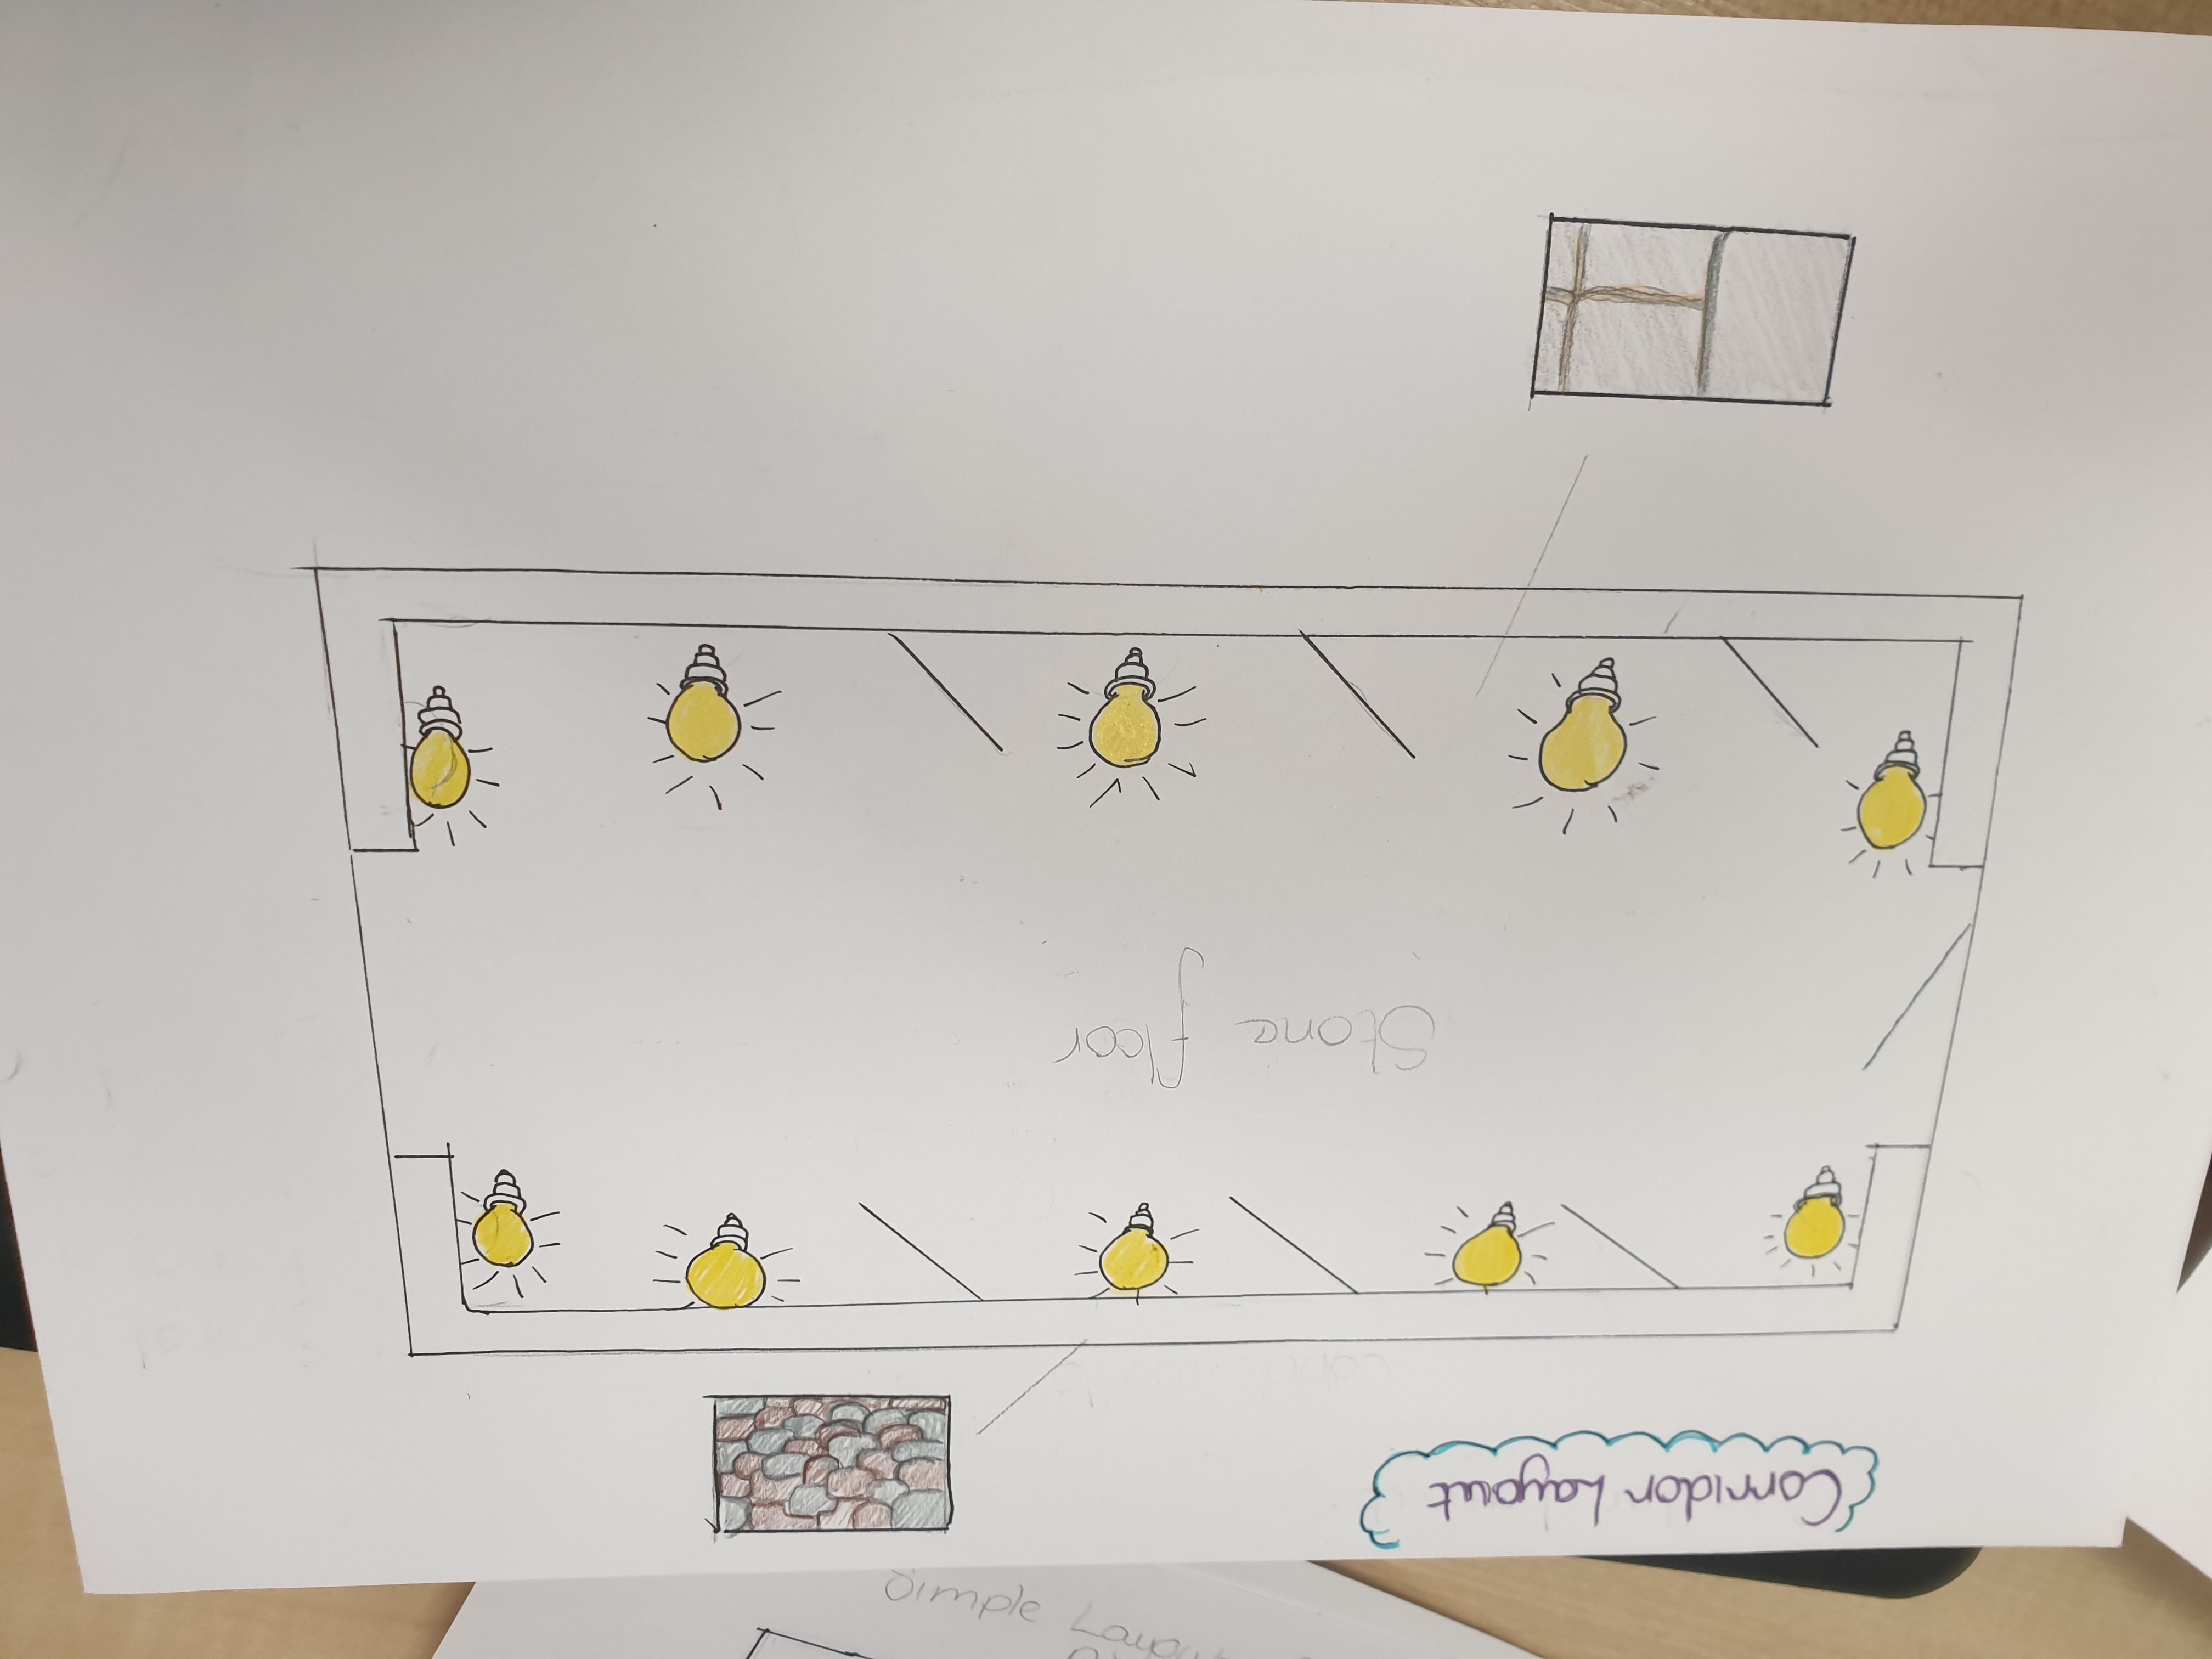 Simple
Corridor Layout
Stone floor